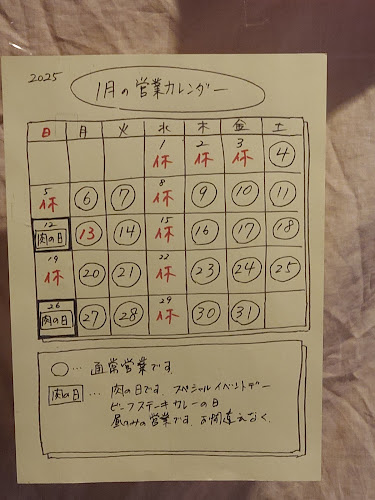 2025
1月の営業カレンダー
日 月 火 水 木 金 土
1 2 3
休 休 休 4
5 8
休 6 7 休 9 10 11
12 15
肉の日 13 14 休 16 17 18
19 22
休 20 21 休 23 24 25
26 29
肉の日 27 28 休 30 31
○… 通常営業です
肉の日 … 肉の日です スペシャルイベントデー
ビーフステーキカレーの日
昼のみの営業です。お間違えなく。